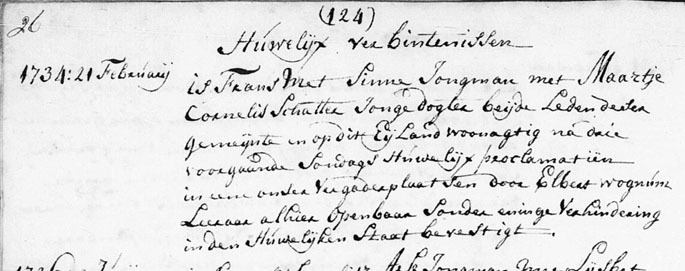 26
(124)
Húwelijx verbintenissen
1734: 21 Februarij
is Frans Met Sinne Jongman met Maartje
Cornelis Schutter Jonge dogter beijde Leden deeser
gemeijnte en op dit Eijland woonagtig na drie
voorgaande Sondags Húwelijx proclamatiën
in eene onser vergaderplaatsen door Elbert wognúm
Leeraar alhier openbaar Sonder eninge verhindering
in den Húwelijken Staat bevestigt.
Jongman met Lijsbet